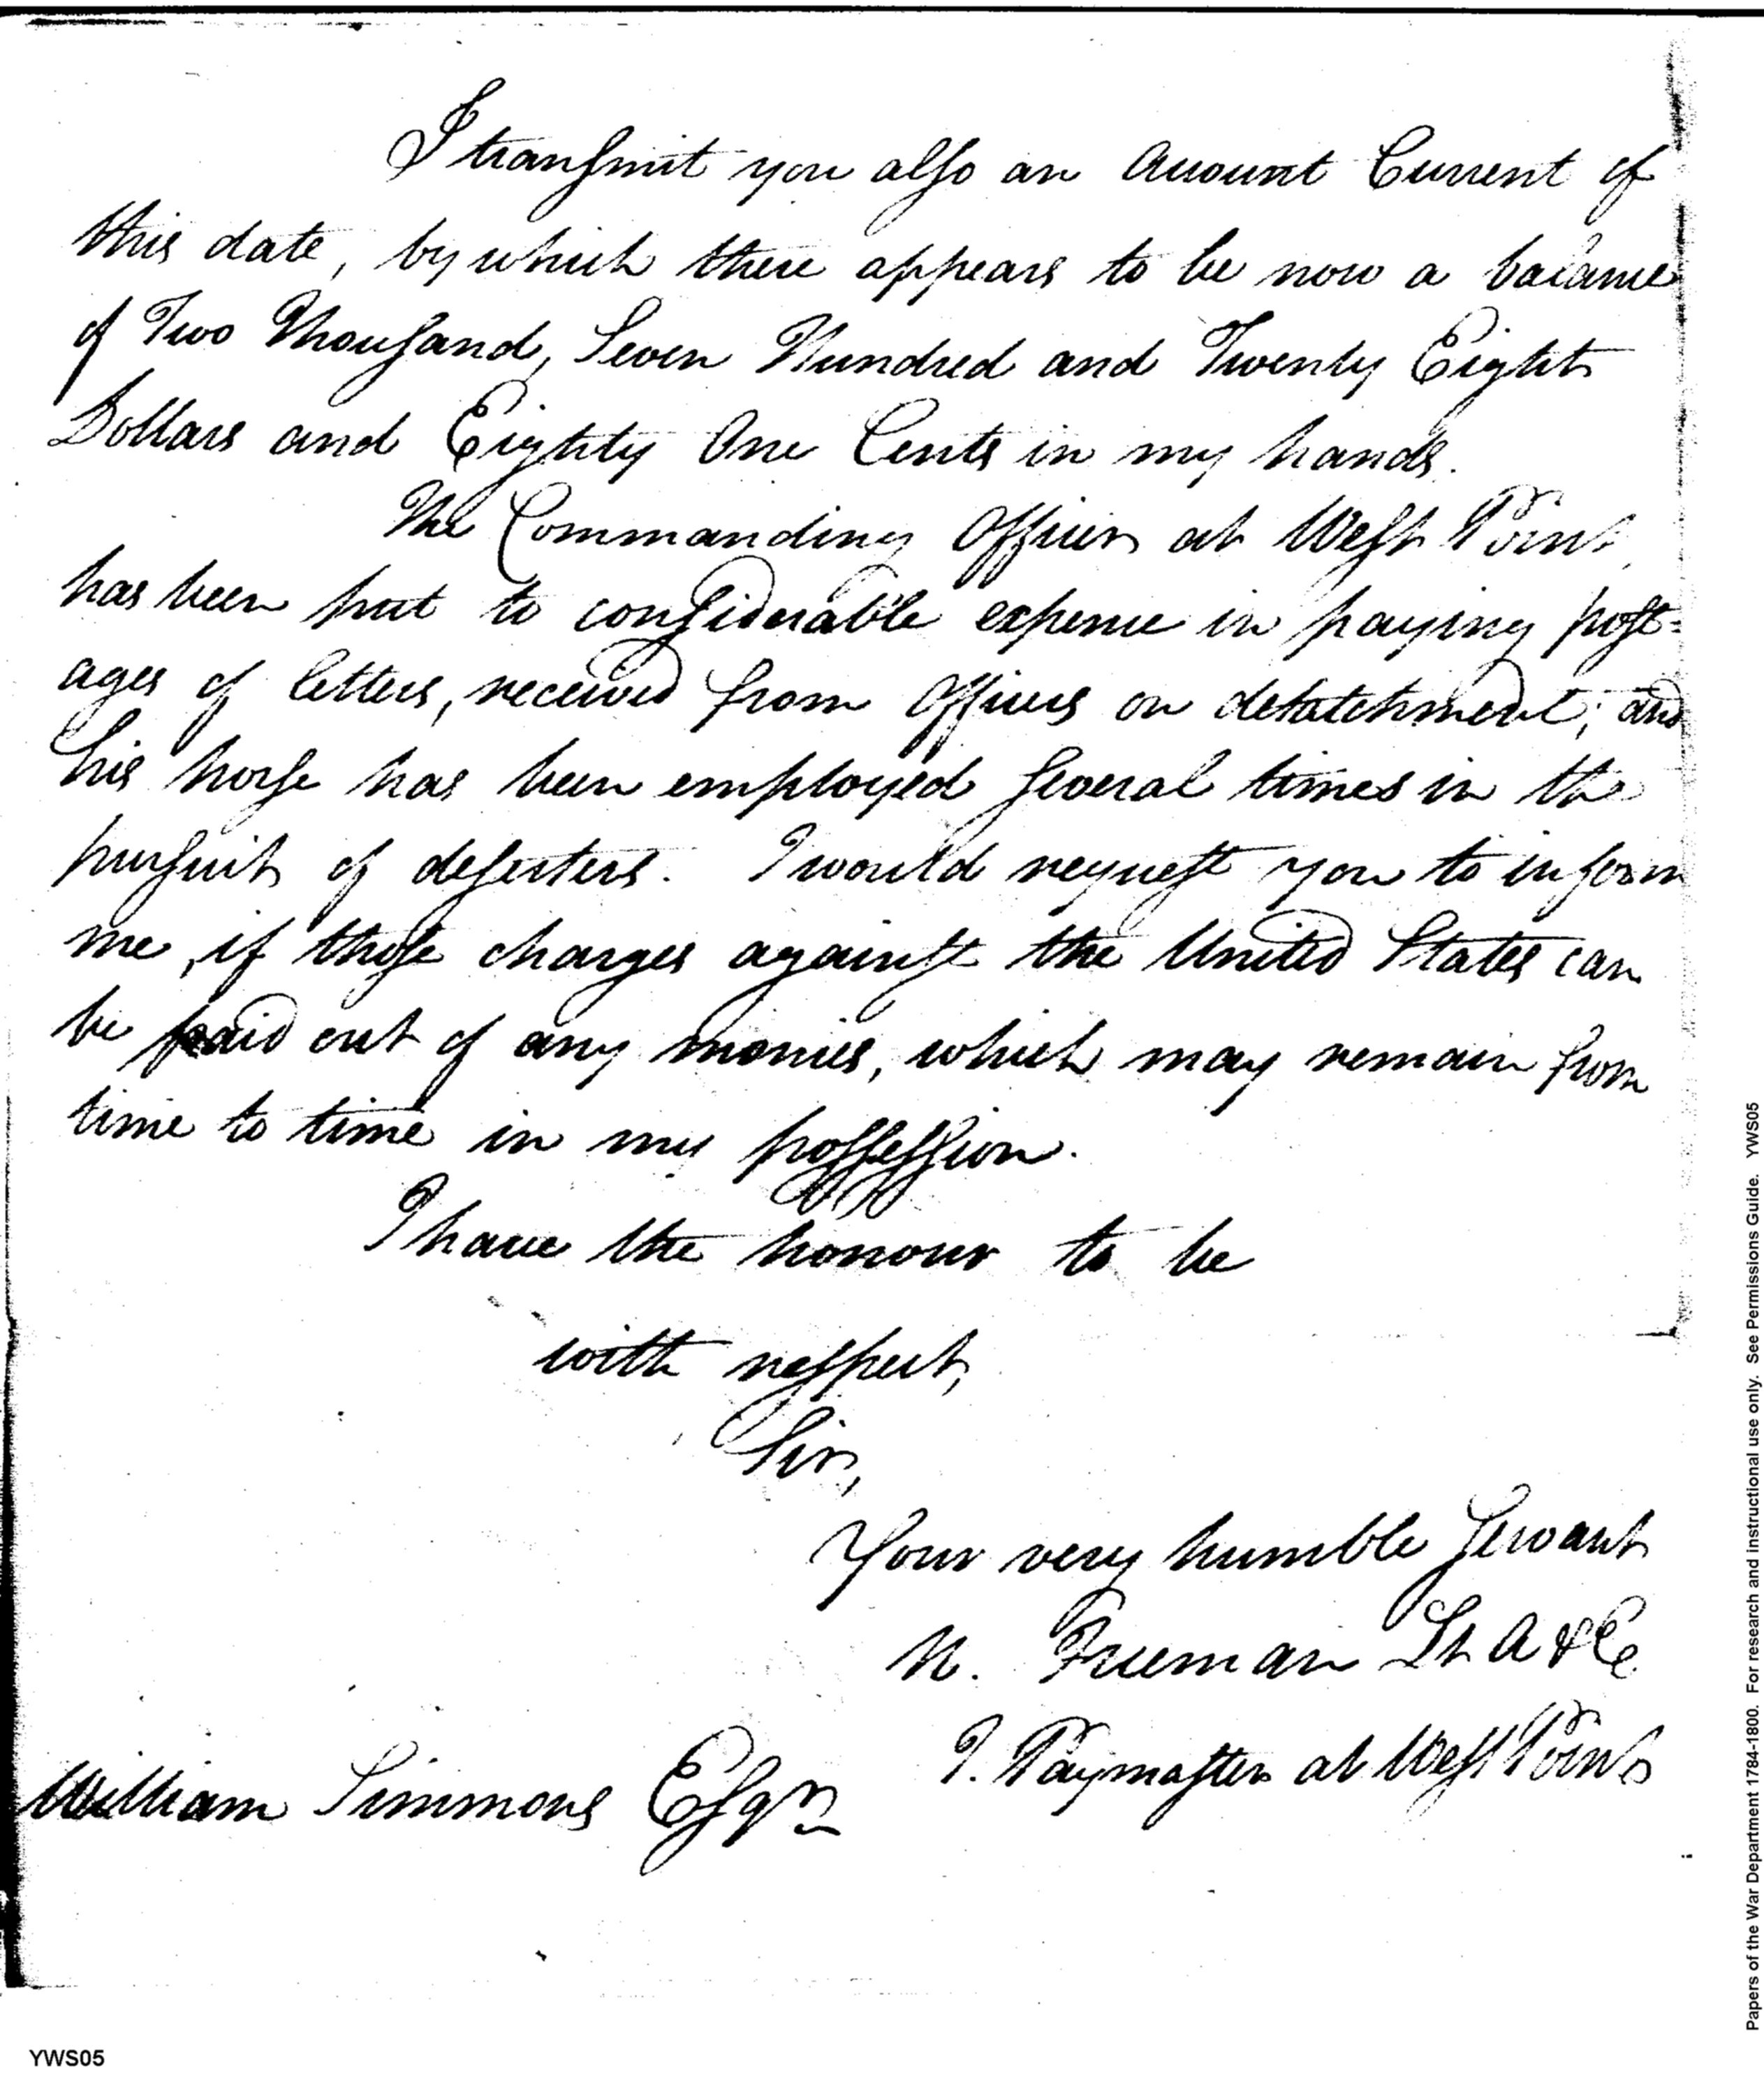 I transmit you also an Account Current of
this date, by which there appears to be now a balance
of Two Thousand, Seven Hundred and Twenty Eight
Dollars and Eighty One Cents in my hands.
The Commanding Officer at West Point,
has been put to considerable expence in paying post-
ages of letters, received from Officers on detatchment; and
his horse has been employed several times in the
pursuit of deserters. I would request you to inform
me, if those charges against the United States can
be paid out of any monies, which may remain from
time to time in my possession.
I have the honour to be
with respect,
Sir,
Your very humble servant
N. Freeman Lt A & E
P. Paymaster at West Point
William Simmons Esqr
YWS05
Papers of the War Department 1784-1800. For research and instructional use only. See Permissions Guide. YWS05